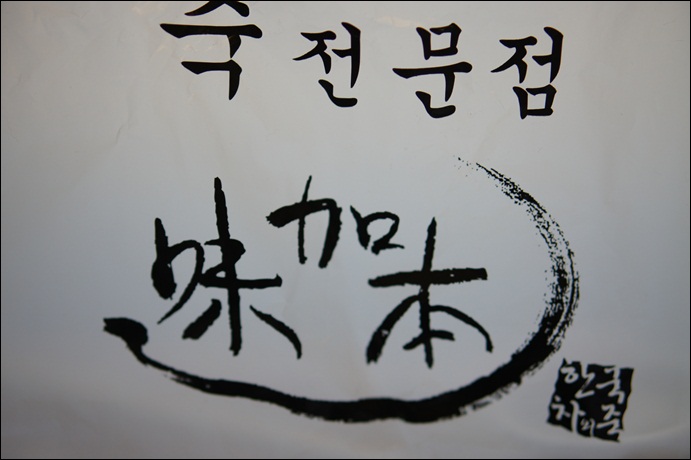 죽 전문점
味加本
한국
차 죽